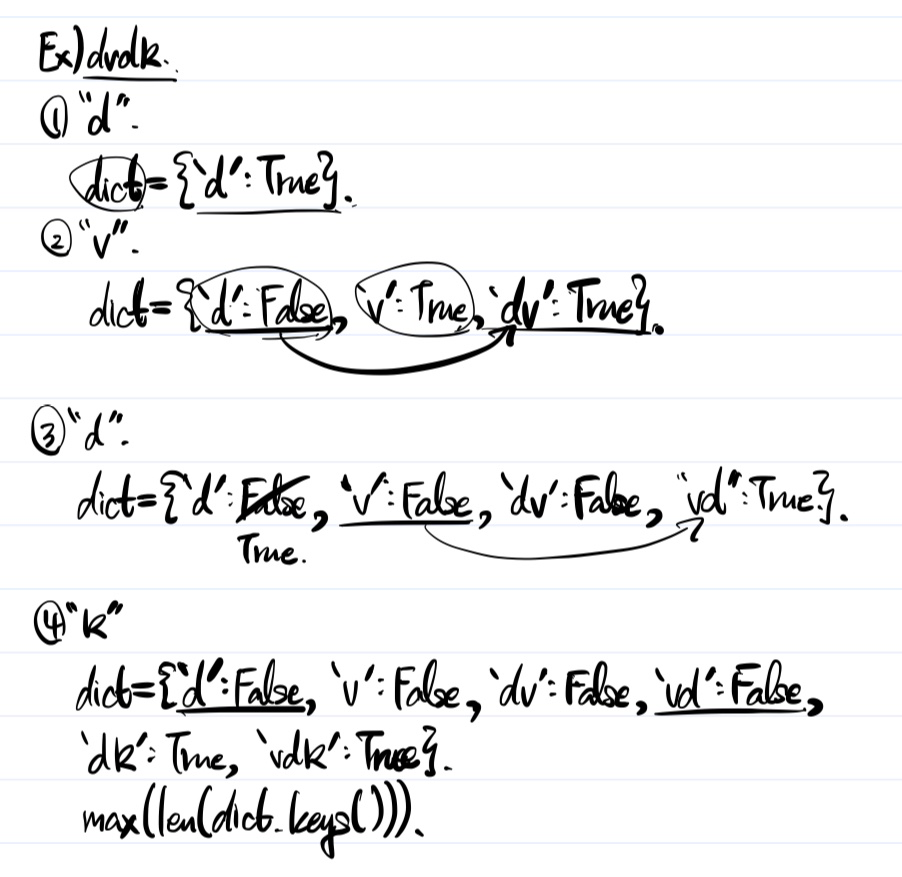 Ex) dvdk.
① "d".
dict={'d':True}.
② "v".
dict={'d':False, 'v':True, 'dv':True}.
③ "d".
dict={'d':False, 'v':False, 'dv':False, 'vd":True}.
True.
④ "k"
dict={'d':False, 'v':False, 'dv':False, 'vd':False,
'dk':True, 'vdk':True}.
max(len(dict.keys())).